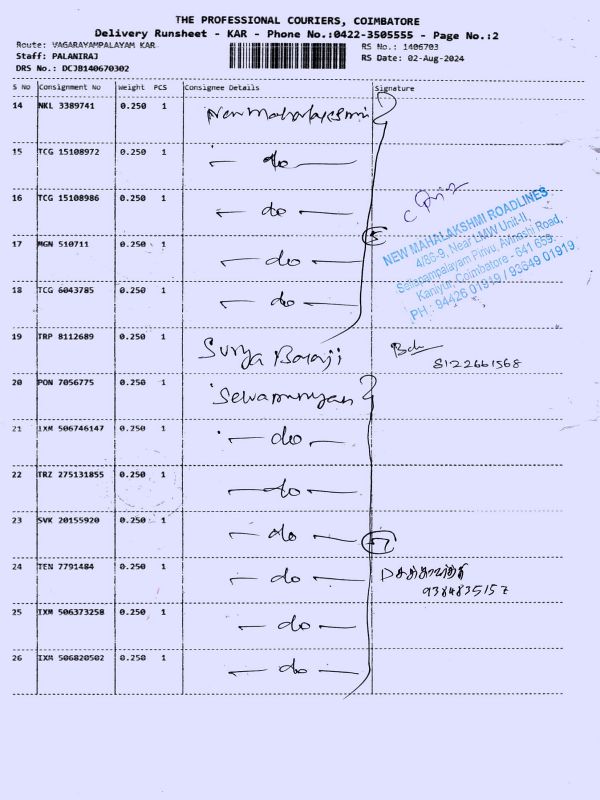 THE PROFESSIONAL COURIERS, COIMBATORE
Delivery Runsheet - KAR - Phone No.:0422-3505555 - Page No.:2
Route: VAGARAYAMPALAYAM KAR
RS No.: 1406703
Staff: PALANIRAJ
RS Date: 02-Aug-2024
DRS No.: DCJB140670302
S No Consignment No Weight PCS Consignee Details Signature
14 NKL 3389741 0.250 1 New Mahalakshmi
15 TCG 15108972 0.250 1 — do —
16 TCG 15108986 0.250 1 — do —
17 MGN 510711 0.250 1 — do — 5
NEW MAHALAKSHMI ROADLINES
4/86-9, Near LMW Unit-II,
Pirivu, Avinashi Road,
Kaniyur, Coimbatore - 641 659.
PH : 94426 01919 / 93649 01919
18 TCG 6043785 0.250 1 — do —
19 TRP 8112689 0.250 1 Surya Balaji
8122661568
20 PON 7056775 0.250 1 Selvamurugan
21 IXM 506746147 0.250 1 — do —
22 TRZ 275131855 0.250 1 — do —
23 SVK 20155920 0.250 1 — do — 7
24 TEN 7791484 0.250 1 — do —
9384835157
25 IXM 506373258 0.250 1 — do —
26 IXM 506820502 0.250 1 — do —